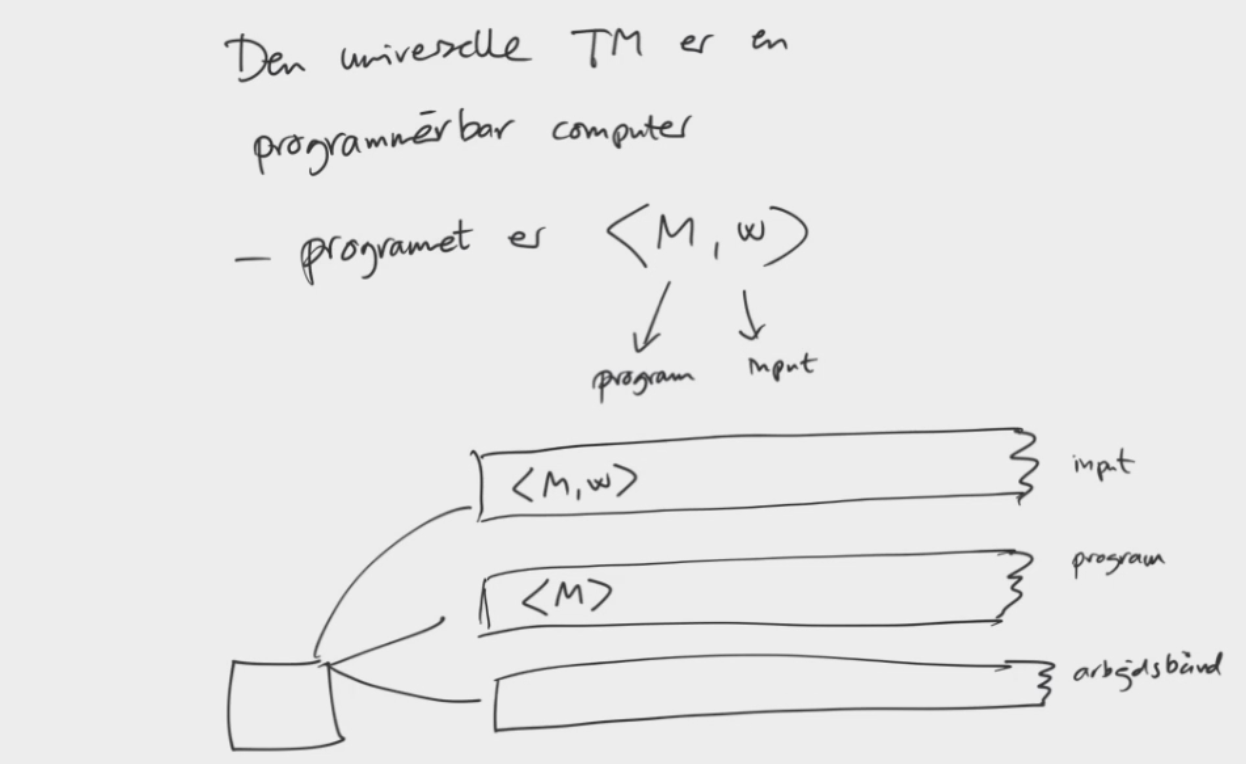 Den universelle TM er en
programmérbar computer
- programet er <M, w>
program input
<M,w> input
<M> program
arbejdsbånd